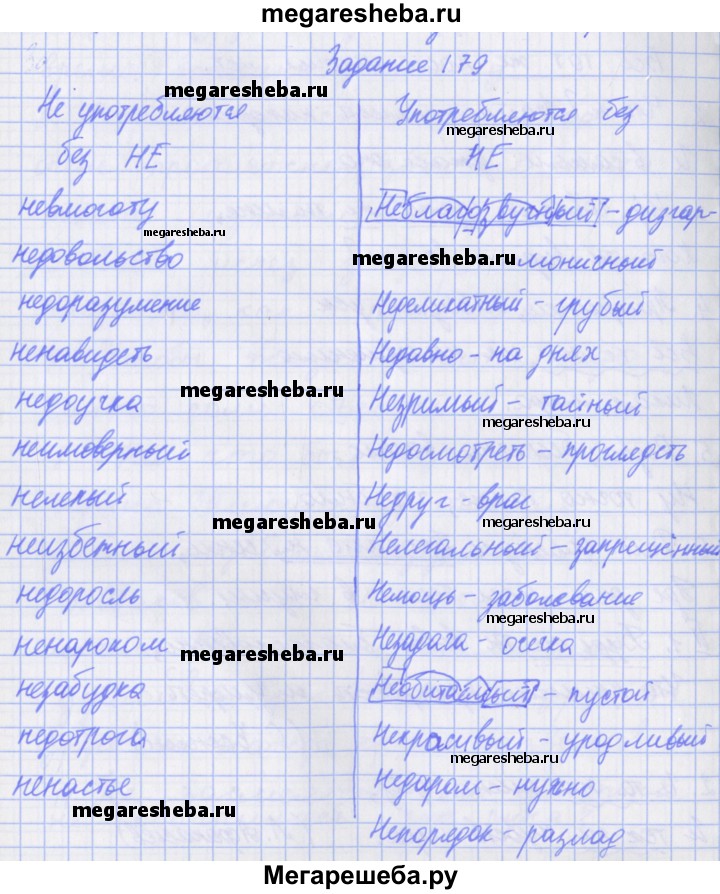 megaresheba.ru
Задание 179
megaresheba.ru
Не употребляются
без НЕ
Употребляются без
megaresheba.ru
НЕ
невмоготу
megaresheba.ru
недовольство
недоразумение
ненавидеть
недоучка
неимоверный
нелепый
неизбежный
недоросль
ненароком
незабудка
недотрога
ненастье
Неблагозвучный - дисгар-
megaresheba.ru
моничный
Неделикатный - грубый
Недавно - на днях
megaresheba.ru
Незримый - тайный
megaresheba.ru
Недосмотреть - проглядеть
Недруг - враг
megaresheba.ru
megaresheba.ru
Нелегальный - запрещённый
Немощь - заболевание
megaresheba.ru
Незадача - осечка
megaresheba.ru
Необитаемый - пустой
Некрасивый - уродливый
megaresheba.ru
Недаром - нужно
megaresheba.ru
Непорядок - разлад
Мегарешеба.ру